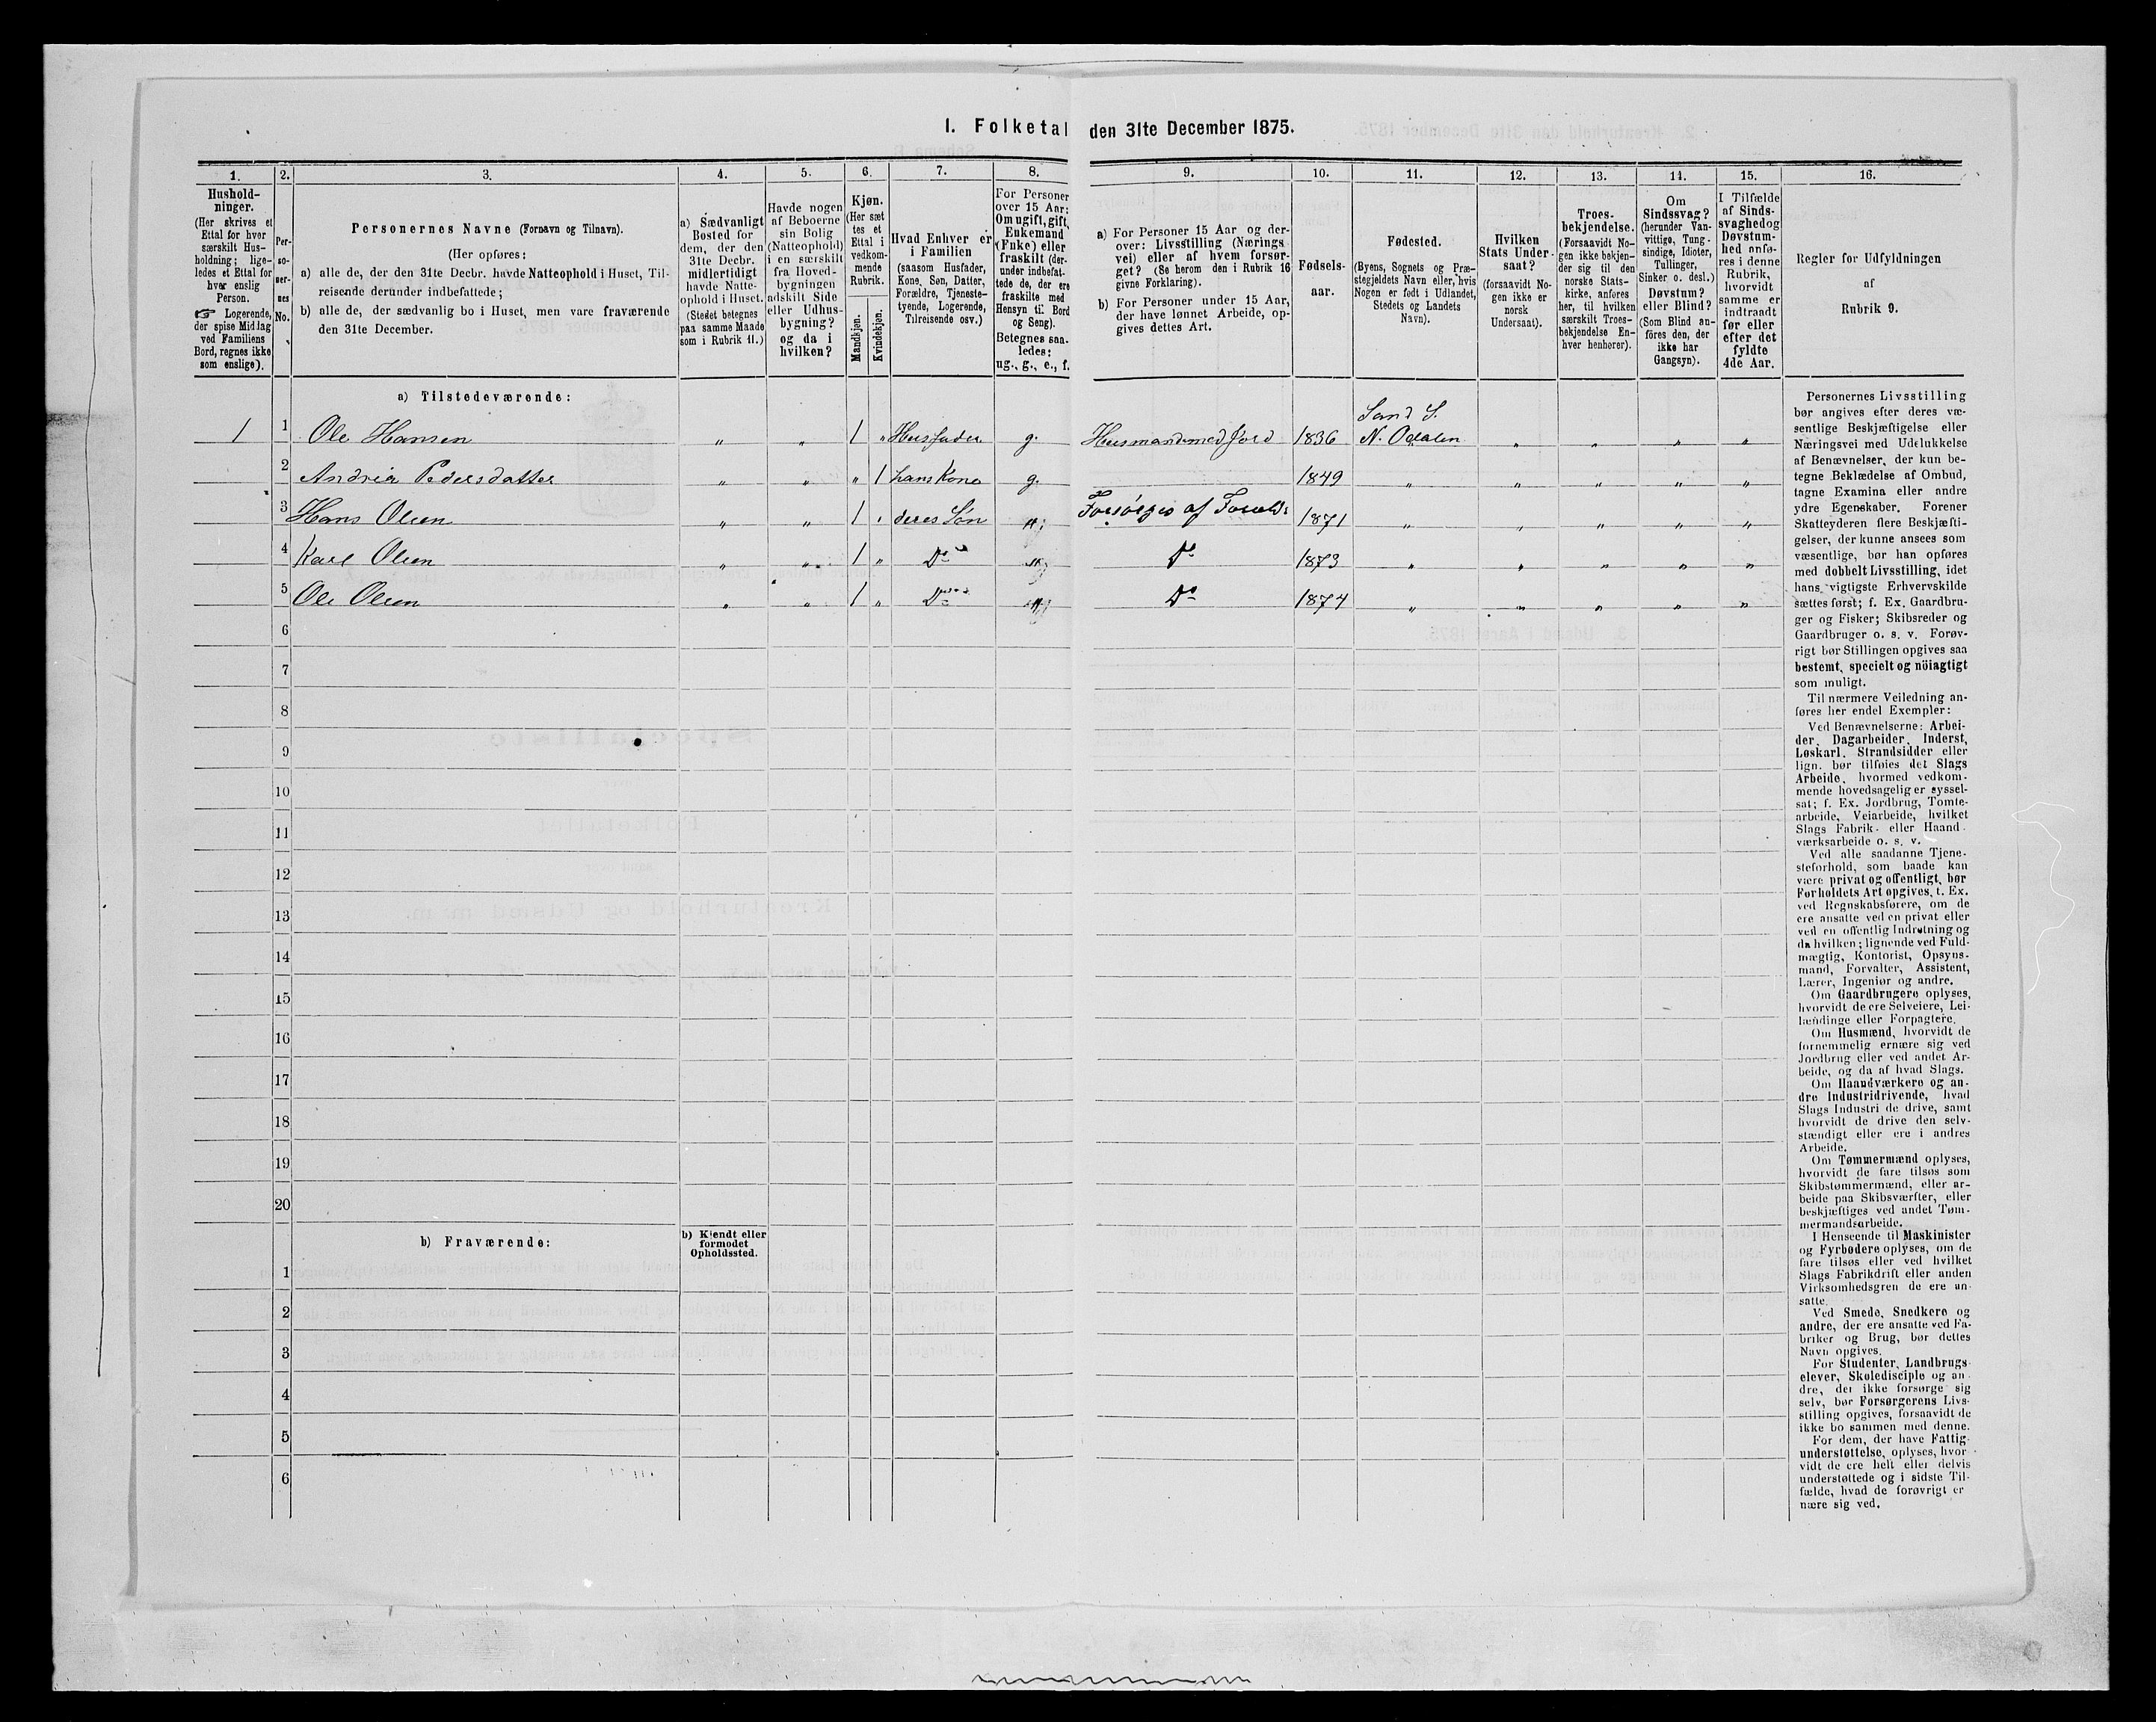 1. Folketal den 31te December 1875.
1. 2. 3. 4. 5. 6. 7. 8. 9. 10. 11. 12. 13. 14. 15. 16.
Hushold-
ninger.
(Her skrives et
Ettal for hver
særskilt Hus-
holdning; lige-
ledes et Ettal for
hver enslig
Person.
☞ Logerende,
der spise Middag
ved Familiens
Bord, regnes ikke
som enslige).
Per-
so-
ner-
nes
No.
Personernes Navne (Fornavn og Tilnavn).
(Her opføres:
a) alle de, der den 31te Decbr. havde Natteophold i Huset, Til-
reisende derunder indbefattede;
b) alle de, der sædvanlig bo i Huset, men vare fraværende
den 31te December.
a) Sædvanligt
Bosted for
dem, der den
31te Decbr.
midlertidigt
havde Natte-
ophold i Huset.
(Stedet betegnes
paa samme Maade
som i Rubrik 11.)
Havde nogen
af Beboerne
sin Bolig
(Natteophold)
i en særskilt
fra Hoved-
bygningen
adskilt Side
eller Udhus-
bygning?
og da i
hvilken?
Kjøn.
(Her sæt
tes et
Ettal i
vedkom-
mende
Rubrik.
Mandkjøn.
Kvindekjøn.
Hvad Enhver er
i Familien
(saasom Husfader,
Kone, Søn, Datter,
Forældre, Tjeneste-
tyende, Logerende,
Tilreisende osv.)
For Personer
over 15 Aar:
Om ugift, gift,
Enkemand
(Enke) eller
fraskilt (der-
under indbefat-
tede de, der ere
fraskilte med
Hensyn til Bord
og Seng).
Betegnes saa-
ledes:
ug., g., e., f.
a) For Personer 15 Aar og der-
over: Livsstilling (Nærings
vei) eller af hvem forsør-
get? (Se herom den i Rubrik 16
givne Forklaring).
b) For Personer under 15 Aar,
der have lønnet Arbeide, op-
gives dettes Art.
Fødsels-
aar.
Fødested.
(Byens, Sognets og Præ-
stegjeldets Navn eller, hvis
Nogen er født i Udlandet,
Stedets og Landets
Navn).
Hvilken
Stats Under-
saat?
(forsaavidt No-
gen ikke er
norsk
Undersaat).
Troes-
bekjendelse.
(Forsaavidt No-
gen ikke bekjen-
der sig til den
norske Stats-
kirke, anføres
her, til hvilken
særskilt Troes-
bekjendelse En-
hver henhører).
Om
Sindssvag?
(herunder Van-
vittige, Tung-
sindige, Idioter,
Tullinger,
Sinker o. desl.)
Døvstum?
eller Blind?
(Som Blind an-
føres den, der
ikke har
Gangsyn).
I Tilfælde
af Sinds-
svaghed og
Døvstum-
hed anfø-
res i denne
Rubrik,
hvorvidt
samme er
indtraadt
før eller
efter det
fyldte
4de Aar.
Regler for Udfyldningen
af
Rubrik 9.
a) Tilstedeværende:
Sand S.
1 1 Ole Hansen „ „ 1 „ Husfader g. Husmand med Jord 1836 N. Odalen „ „ „ „
2 Andrea Pedersdatter „ „ „ 1 hans Kone g. 1849 „ „ „ „ „
3 Hans Olsen „ „ 1 „ deres Søn Forsørges af Foreld: 1871 „ „ „ „ „
4 Karl Olsen „ „ 1 „ Do Do 1873 „ „ „ „ „
5 Ole Olsen „ „ 1 „ Do Do 1874 „ „ „ „ „
6
7
8
9
10
11
12
13
14
15
16
17
18
19
20
b) Fraværende:
b) Kjendt eller
formodet
Opholdssted.
1
2
3
4
5
6
Personernes Livsstilling
bør angives efter deres væ-
sentlige Beskjæftigelse eller
Næringsvei med Udelukkelse
af Benævnelser, der kun be-
tegne Beklædelse af Ombud,
tagne Examina eller andre
ydre Egenskaber. Forener
Skatteyderen flere Beskjæfti-
gelser, der kunne ansees som
væsentlige, bør han opføres
med dobbelt Livsstilling, idet
hans vigtigste Erhvervskilde
sættes først; f. Ex. Gaardbru-
ger og Fisker; Skibsreder og
Gaardbruger o. s. v. Forøv-
rigt bør Stillingen opgives saa
bestemt, specielt og nöiagtigt
som muligt.
Til nærmere Veiledning an-
føres her endel Exempler:
Ved Benævnelserne: Arbei-
der, Dagarbeider, Inderst,
Løskarl, Strandsidder eller
lign. bør tilføies det Slags
Arbeide, hvormed vedkom-
mende hovedsagelig er syssel-
sat; f. Ex. Jordbrug, Tomte-
arbeide, Veiarbeide, hvilket
Slags Fabrik- eller Haand-
værksarbeide o. s. v.
Ved alle saadanne Tjene-
steforhold, som baade kan
være privat og offentligt, bør
Forholdets Art opgives, t. Ex.
ved Regnskabsførere, om de
ere ansatte ved en privat eller
ved en offentlig Indretning og
da hvilken; lignende ved Fuld-
mægtig, Kontorist, Opsyns-
mand, Forvalter, Assistent,
Lærer, Ingeniør og andre.
Om Gaardbrugere oplyses,
hvorvidt de ere Selveiere, Lei-
lændinge eller Forpagtere.
Om Husmænd, hvorvidt de
fornemmelig ernære sig ved
Jordbrug eller ved andet Ar-
beide, og da af hvad Slags.
Om Haandværkere og an-
dre Industridrivende, hvad
Slags Industri de drive, samt
hvorvidt de drive den selv-
stændigt eller ere i andres
Arbeide.
Om Tømmermænd oplyses,
hvorvidt de fare tilsøs som
Skibstømmermænd, eller ar-
beide paa Skibsværfter, eller
beskjæftiges ved andet Tøm-
mermandsarbeide.
I Henseende til Maskinister
og Fyrbødere oplyses, om de
fare tilsøs eller ved hvilket
Slags Fabrikdrift eller anden
Virksomhedsgren de ere an-
satte.
Ved Smede, Snedkere og
andre, der ere ansatte ved Fa-
briker og Brug, bør dettes
Navn opgives.
For Studenter, Landbrugs-
elever, Skoledisciple og an-
dre, der ikke forsørge sig
selv, bør Forsørgerens Livs-
stilling opgives, forsaavidt de
ikke bo sammen med denne.
For dem, der have Fattig-
understøttelse, oplyses, hvor-
vidt de ere helt eller delvis
understøttede og i sidste Til-
fælde, hvad de forøvrigt er
nære sig ved.